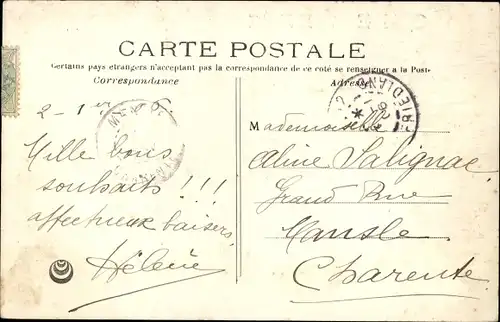 CARTE POSTALE
Certains pays étrangers n'acceptant pas la correspondance de ce coté se renseigner a la Post-
Correspondance
Adresse
2 - 1er
Mille bons
souhaits !!!
affectueux baisers
Hélène
Mademoiselle
Aline Salignac
Grand Rue
Mansle
Charente